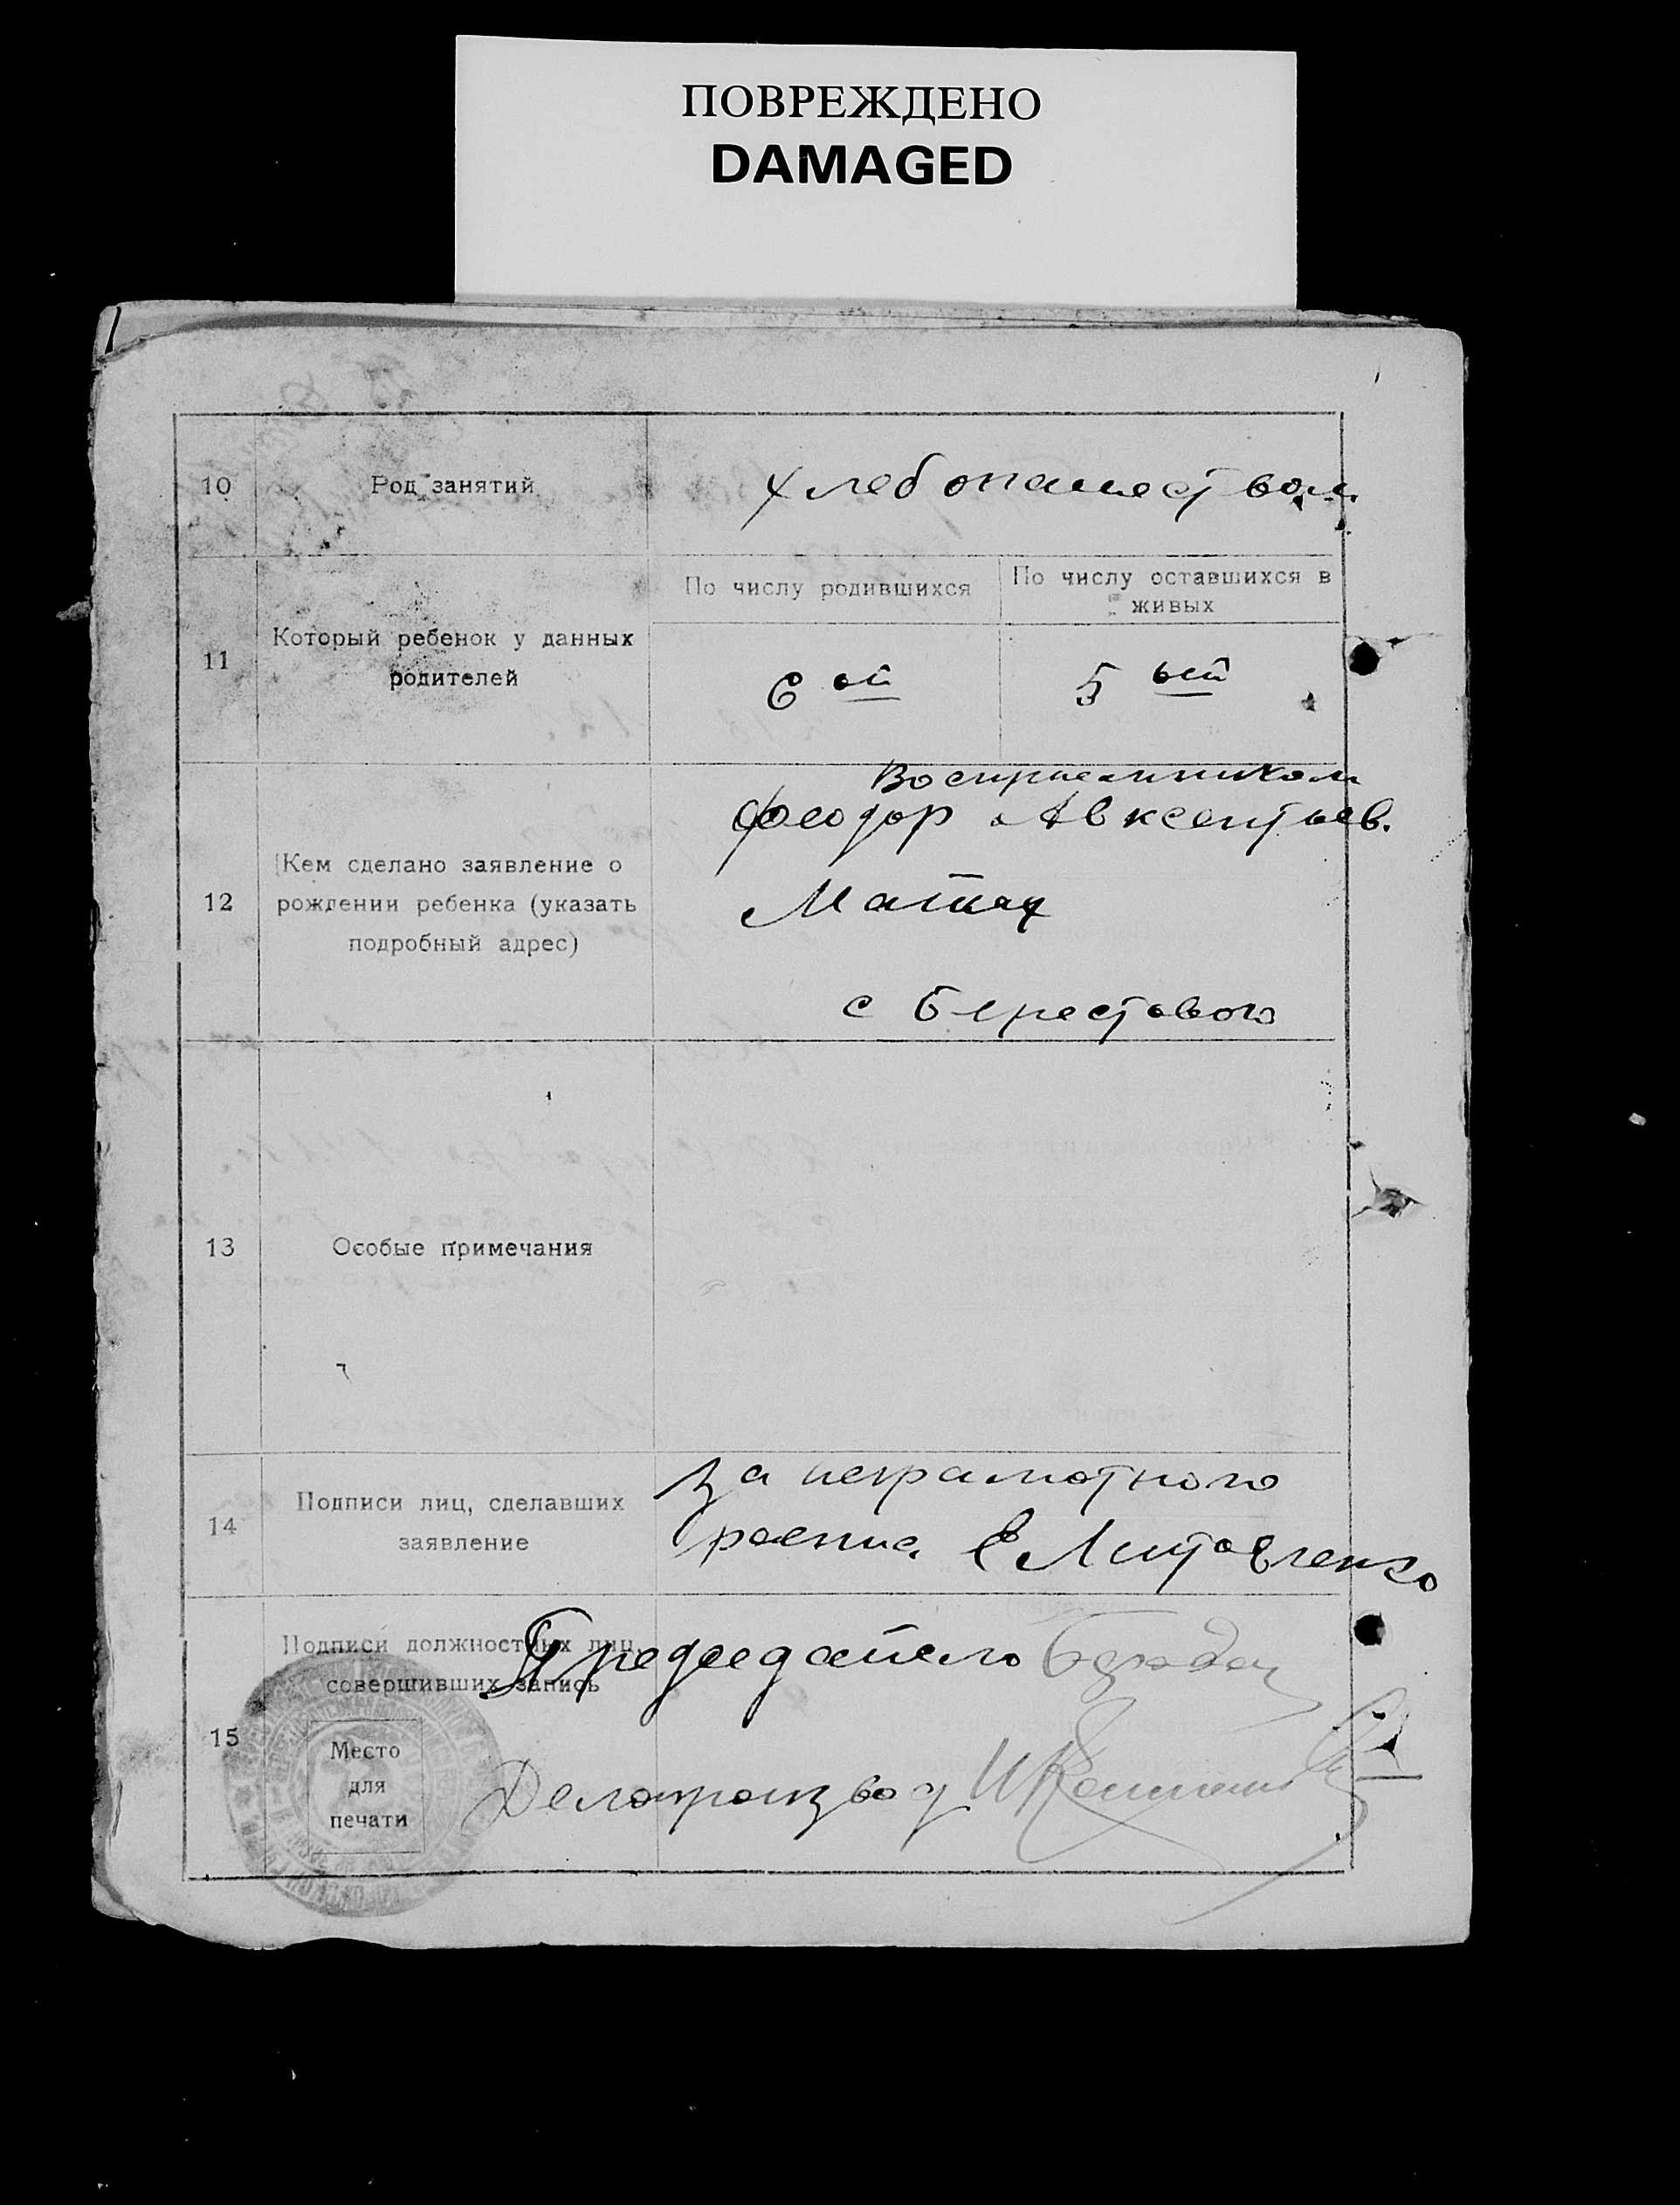 ПОВРЕЖДЕНО
DAMAGED
10
Род занятий
хлебопашеством
11
Который ребенок у данных
родителей
По числу родившихся
По числу оставшихся в
живых
6 ой
5 ый
12
Кем сделано заявление о
рождении ребенка (указать
подробный адрес)
Восприемником
Феодор Авксентьев.
с Берестового
13
Особые примечания
14
Подписи лиц, сделавших
заявление
за неграмотного
Е Литовченко
15
Подписи должностных лиц,
совершивших запись
Председатель
Место
для
печати
Делопроизвод